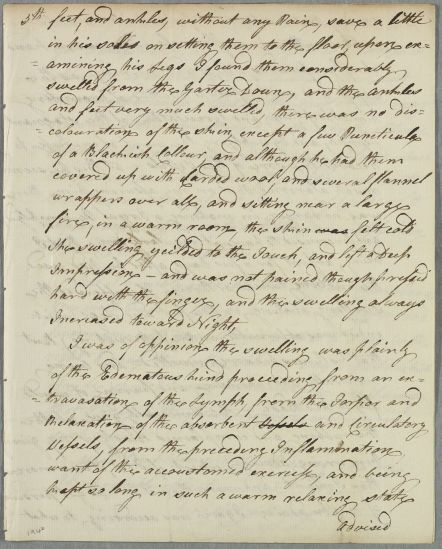 5th feet and anhles, without any Pain, save a little
in his soles on setting them to the floor, upon ex=
=amining his Legs I found them considerably
swelled from the Garter Down, and the Anhles
and feet very much swelled, there was no dis=
=colouration of the skin, except a few Puncticula
of a Blackish Collour, and although he had them
covered up with carded wool, and several flannel
wrappers over all, and sitting near a large
fire, in a warm room the skin was felt cold
the swelling yeilded to the Touch, and left a Deep
Impression — and was not pained though pressed
hard with the finger, and the swelling always
Increased toward Night,
I was of oppinion the swelling was plainly
of the Edematous kind proceeding from an ex=
=travasation of the Lymph from the Torpor and
Relaxation of the absorbent Vessels and Circulatory
Vessels, from the preceding Inflamation
want of the accoustomed exercise, and being
kept so long in such a warm relaxing state
advised